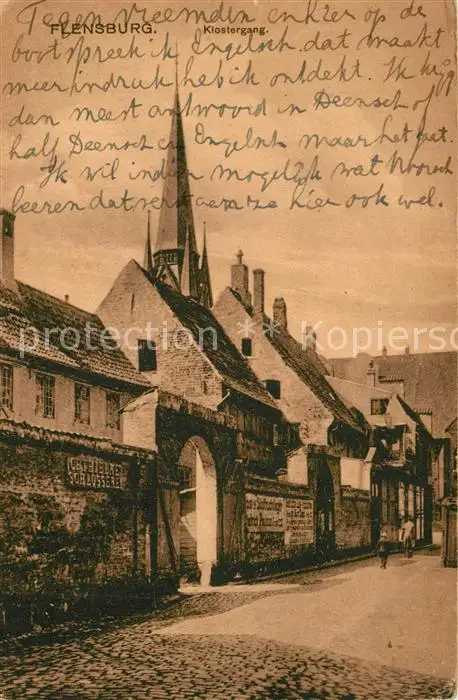 Tegen vreemden en hier op de
FLENSBURG. Klostergang.
boot spreek ik Engelsch, dat maakt
meer indruk heb ik ontdekt. Ik krijg
dan meest antwoord in Deensch of
half Deensch en Engelsch maar het gaat.
Ik wil indien mogelijk wat Noorsch
leeren dat verstaan ze hier ook wel.
Ansichtskarten Kopierschutz
SCHLOSSEREI